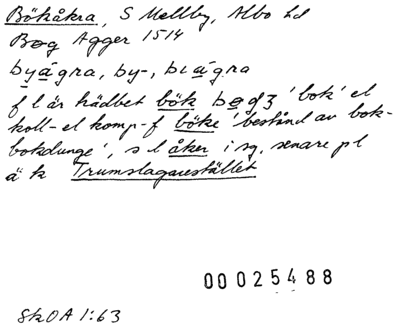 Bökåkra, S Mellby, Albo hd
Bøg Agger 1514
byågra, by-, bıågra
f l är hädbet bök 'bok' el
koll- el komp-f böke 'bestånd av bok-
bokdunge', s l åker i sg, senare pl
ä k Trumslagarestället
00025488
SkOA 1:63